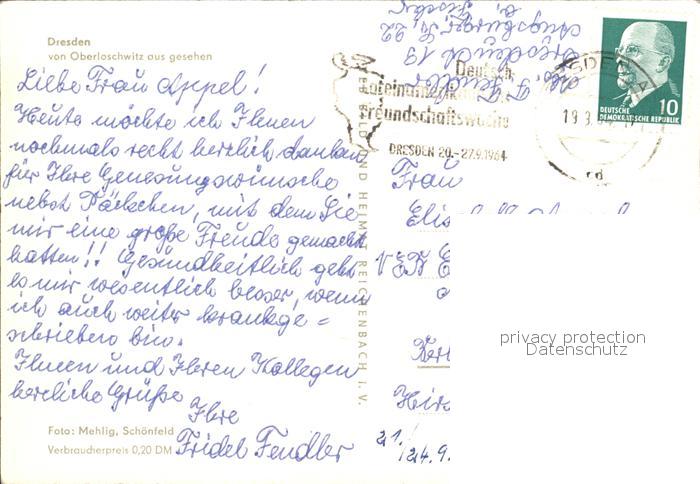 Dresden
von Oberloschwitz aus gesehen
Liebe Frau Appel!
Heute möchte ich Ihnen
nochmals recht herzlich danken
für Ihre Genesungswünsche
nebst Päckchen, mit dem Sie
mir eine große Freude gemacht
hatten!! Gesundheitlich geht
es mir wesentlich besser, wenn
ich auch weiter krankge=
schrieben bin.
Ihnen und Ihren Kollegen
herzliche Grüße
Ihre
Fridel Fendler
Foto: Mehlig, Schönfeld
Verbraucherpreis 0,20 DM
BILD UND HEIMAT REICHENBACH I. V.
Deutsch-
Lateinamerikanische
Freundschaftswoche
DRESDEN 20.-27.9.1964
10
DEUTSCHE
DEMOKRATISCHE REPUBLIK
Fendler
Dresden 19
Augsburger Str. 22
Frau
VEB
21./24.9.
privacy protection
Datenschutz